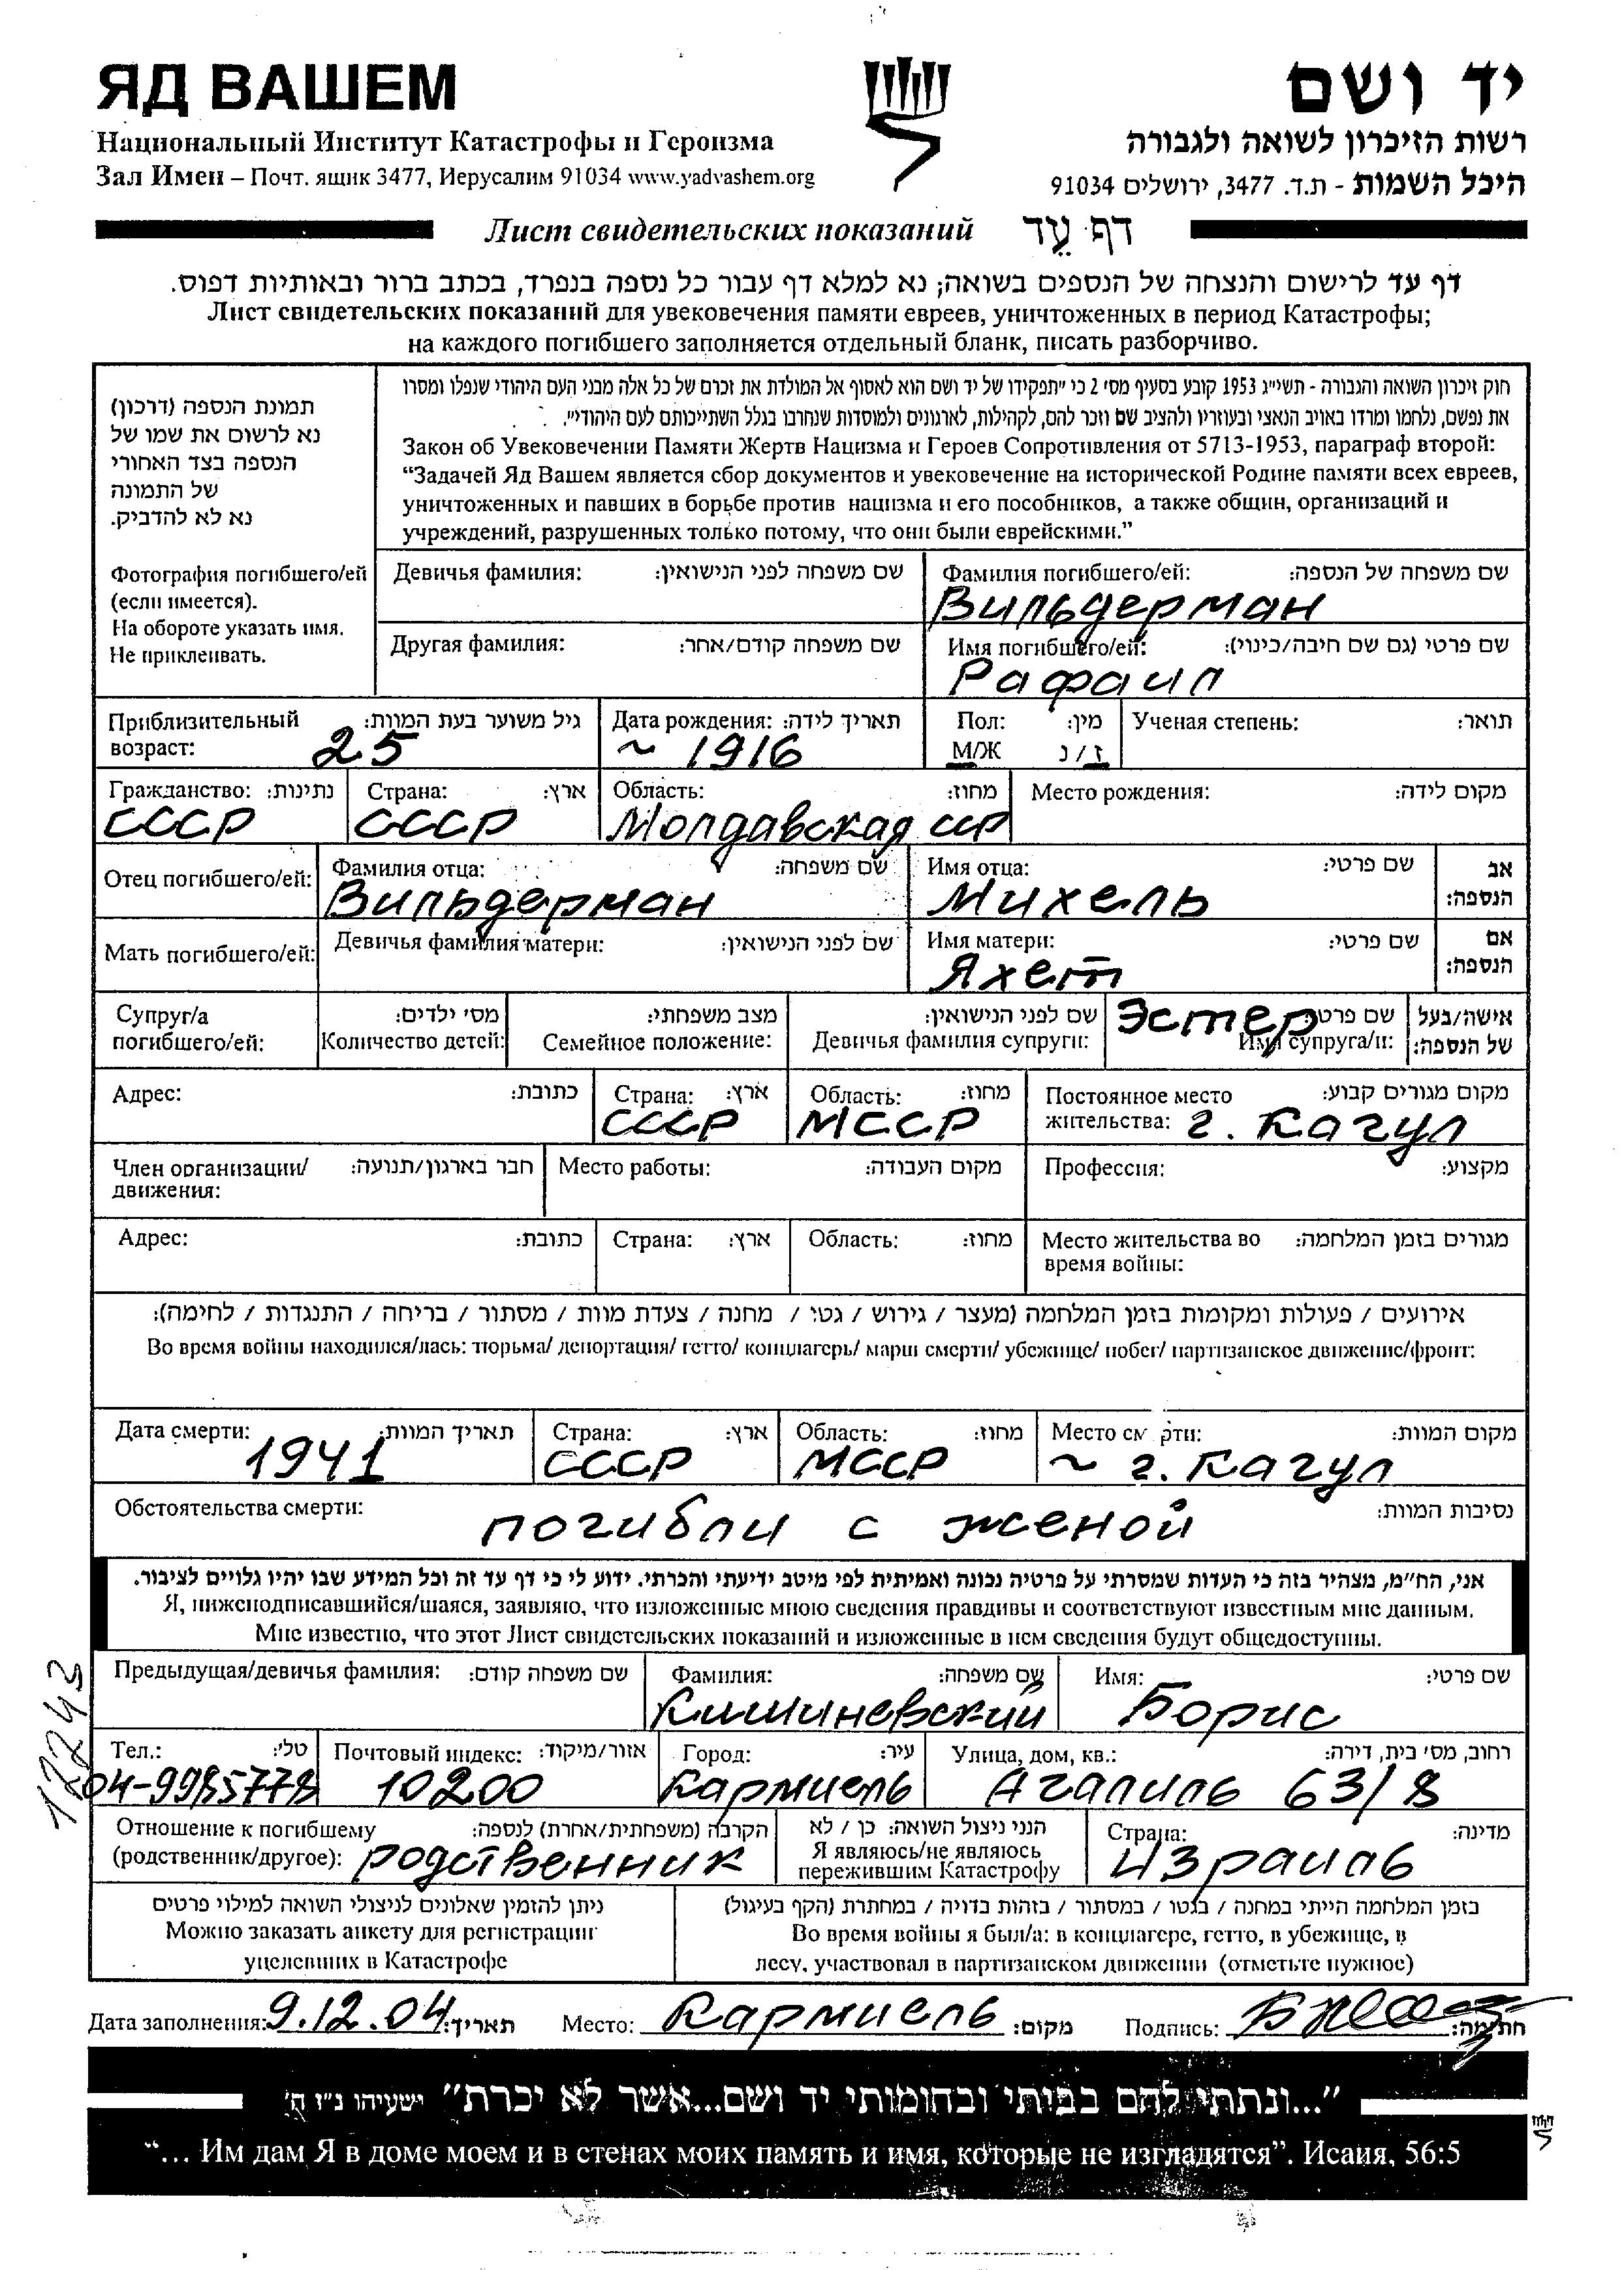 ЯД ВАШЕМ
יד ושם
Национальный Институт Катастрофы и Героизма
רשות הזיכרון לשואה ולגבורה
Зал Имен – Почт. ящик 3477, Иерусалим 91034 www.yadvashem.org
היכל השמות - ת.ד. 3477, ירושלים 91034
Лист свидетельских показаний דף עֵד
דף עד לרישום והנצחה של הנספים בשואה; נא למלא דף עבור כל נספה בנפרד, בכתב ברור ובאותיות דפוס.
Лист свидетельских показаний для увековечения памяти евреев, уничтоженных в период Катастрофы;
на каждого погибшего заполняется отдельный бланк, писать разборчиво.
תמונת הנספה (דרכון)
נא לרשום את שמו של
הנספה בצד האחורי
של התמונה
נא לא להדביק.
Фотография погибшего/ей
(если имеется).
На обороте указать имя.
Не приклеивать.
חוק זיכרון השואה והגבורה - תשי״ג 1953 קובע בסעיף מס׳ 2 כי ״תפקידו של יד ושם הוא לאסוף אל המולדת את זכרם של כל אלה מבני העם היהודי שנפלו ומסרו
את נפשם, נלחמו ומרדו באויב הנאצי ובעוזריו ולהציב שם וזכר להם, לקהילות, לארגונים ולמוסדות שנחרבו בגלל השתייכותם לעם היהודי״.
Закон об Увековечении Памяти Жертв Нацизма и Героев Сопротивления от 5713-1953, параграф второй:
“Задачей Яд Вашем является сбор документов и увековечение на исторической Родине памяти всех евреев,
уничтоженных и павших в борьбе против нацизма и его пособников, а также общин, организаций и
учреждений, разрушенных только потому, что они были еврейскими.”
Девичья фамилия: שם משפחה לפני הנישואין:
Фамилия погибшего/ей: שם משפחה של הנספה:
Вильдерман
Другая фамилия: שם משפחה קודם/אחר:
Имя погибшего/ей: שם פרטי (גם שם חיבה/כינוי):
Рафаил
Приблизительный возраст: גיל משוער בעת המוות: 25
Дата рождения: תאריך לידה: ~ 1916
Пол: מין: М/Ж ז/נ
Ученая степень: תואר:
Гражданство: נתינות: СССР
Страна: ארץ: СССР
Область: מחוז: Молдавская ССР
Место рождения: מקום לידה:
Отец погибшего/ей:
Фамилия отца: שם משפחה: Вильдерман
Имя отца: שם פרטי: Михель
אב הנספה:
Мать погибшего/ей:
Девичья фамилия матери: שם לפני הנישואין:
Имя матери: שם פרטי: Яхет
אם הנספה:
Супруг/а погибшего/ей:
מס׳ ילדים: Количество детей:
מצב משפחתי: Семейное положение:
שם לפני הנישואין: Девичья фамилия супруги:
שם פרטי Имя супруга/и: Эстер
אישה/בעל של הנספה:
Адрес: כתובת:
Страна: ארץ: СССР
Область: מחוז: МССР
Постоянное место жительства: מקום מגורים קבוע: г. Кагул
Член организации/движения: חבר בארגון/תנועה:
Место работы: מקום העבודה:
Профессия: מקצוע:
Адрес: כתובת:
Страна: ארץ:
Область: מחוז:
Место жительства во время войны: מגורים בזמן המלחמה:
אירועים / פעולות ומקומות בזמן המלחמה (מעצר / גירוש / גטו / מחנה / צעדת מוות / מסתור / בריחה / התנגדות / לחימה):
Во время войны находился/лась: тюрьма/ депортация/ гетто/ концлагерь/ марш смерти/ убежище/ побег/ партизанское движение/фронт:
Дата смерти: תאריך המוות: 1941
Страна: ארץ: СССР
Область: מחוז: МССР
Место смерти: מקום המוות: ~ г. Кагул
Обстоятельства смерти: נסיבות המוות:
погибли с женой
אני, הח״מ, מצהיר בזה כי העדות שמסרתי על פרטיה נכונה ואמיתית לפי מיטב ידיעתי והכרתי. ידוע לי כי דף עד זה וכל המידע שבו יהיו גלויים לציבור.
Я, нижеподписавшийся/шаяся, заявляю, что изложенные мною сведения правдивы и соответствуют известным мне данным.
Мне известно, что этот Лист свидетельских показаний и изложенные в нем сведения будут общедоступны.
Предыдущая/девичья фамилия: שם משפחה קודם:
Фамилия: שם משפחה: Кишиневский
Имя: שם פרטי: Борис
Тел.: טל׳: 04-9985778
Почтовый индекс: אזור/מיקוד: 10200
Город: עיר: Кармиель
Улица, дом, кв.: רחוב, מס׳ בית, דירה: Агалиль 63/8
Отношение к погибшему (родственник/другое): הקרבה (משפחתית/אחרת) לנספה: родственник
הנני ניצול השואה: כן / לא
Я являюсь/не являюсь
пережившим Катастрофу
Страна: מדינה: Израиль
ניתן להזמין שאלונים לניצולי השואה למילוי פרטים
Можно заказать анкету для регистрации
уцелевших в Катастрофе
בזמן המלחמה הייתי במחנה / בגטו / במסתור / בזהות בדויה / במחתרת (הקף בעיגול)
Во время войны я был/а: в концлагере, гетто, в убежище, в
лесу, участвовал в партизанском движении (отметьте нужное)
Дата заполнения: 9.12.04 תאריך: Место: Кармиель מקום: Подпись: חתימה:
״...ונתתי להם בביתי ובחומותי יד ושם...אשר לא יכרת״ ישעיהו נ״ו ה׳
“... Им дам Я в доме моем и в стенах моих память и имя, которые не изгладятся”. Исаия, 56:5